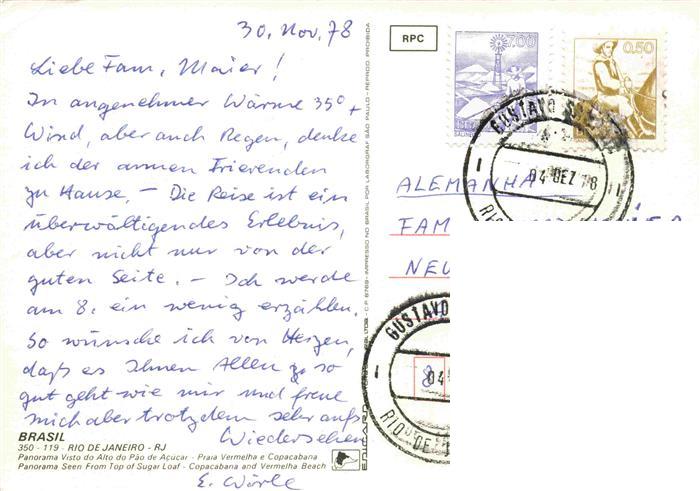 30. Nov. 78
Liebe Fam. Maier!
In angenehmer Wärme 35° +
Wind, aber auch Regen, denke
ich der armen Frierenden
zu Hause. – Die Reise ist ein
überwältigendes Erlebnis,
aber nicht nur von der
guten Seite. – Ich werde
am 8. ein wenig erzählen.
So wünsche ich von Herzen,
daß es Ihnen Allen so
gut geht wie mir und freue
mich aber trotzdem sehr aufs
Wiedersehen
E. Wörle
BRASIL
350 - 119 - RIO DE JANEIRO - RJ
Panorama Visto do Alto do Pão de Açucar - Praia Vermelha e Copacabana
Panorama Seen From Top of Sugar Loaf - Copacabana and Vermelha Beach
IMPRESSO NO BRASIL POR LABORGRAF SÃO PAULO - REPROD. PROIBIDA
RPC
7.00
0.50
GUSTAVO
04 DEZ 78
RIO
ALEMANHA
FAM
NEU
GUSTAVO
8
04
RIO DE